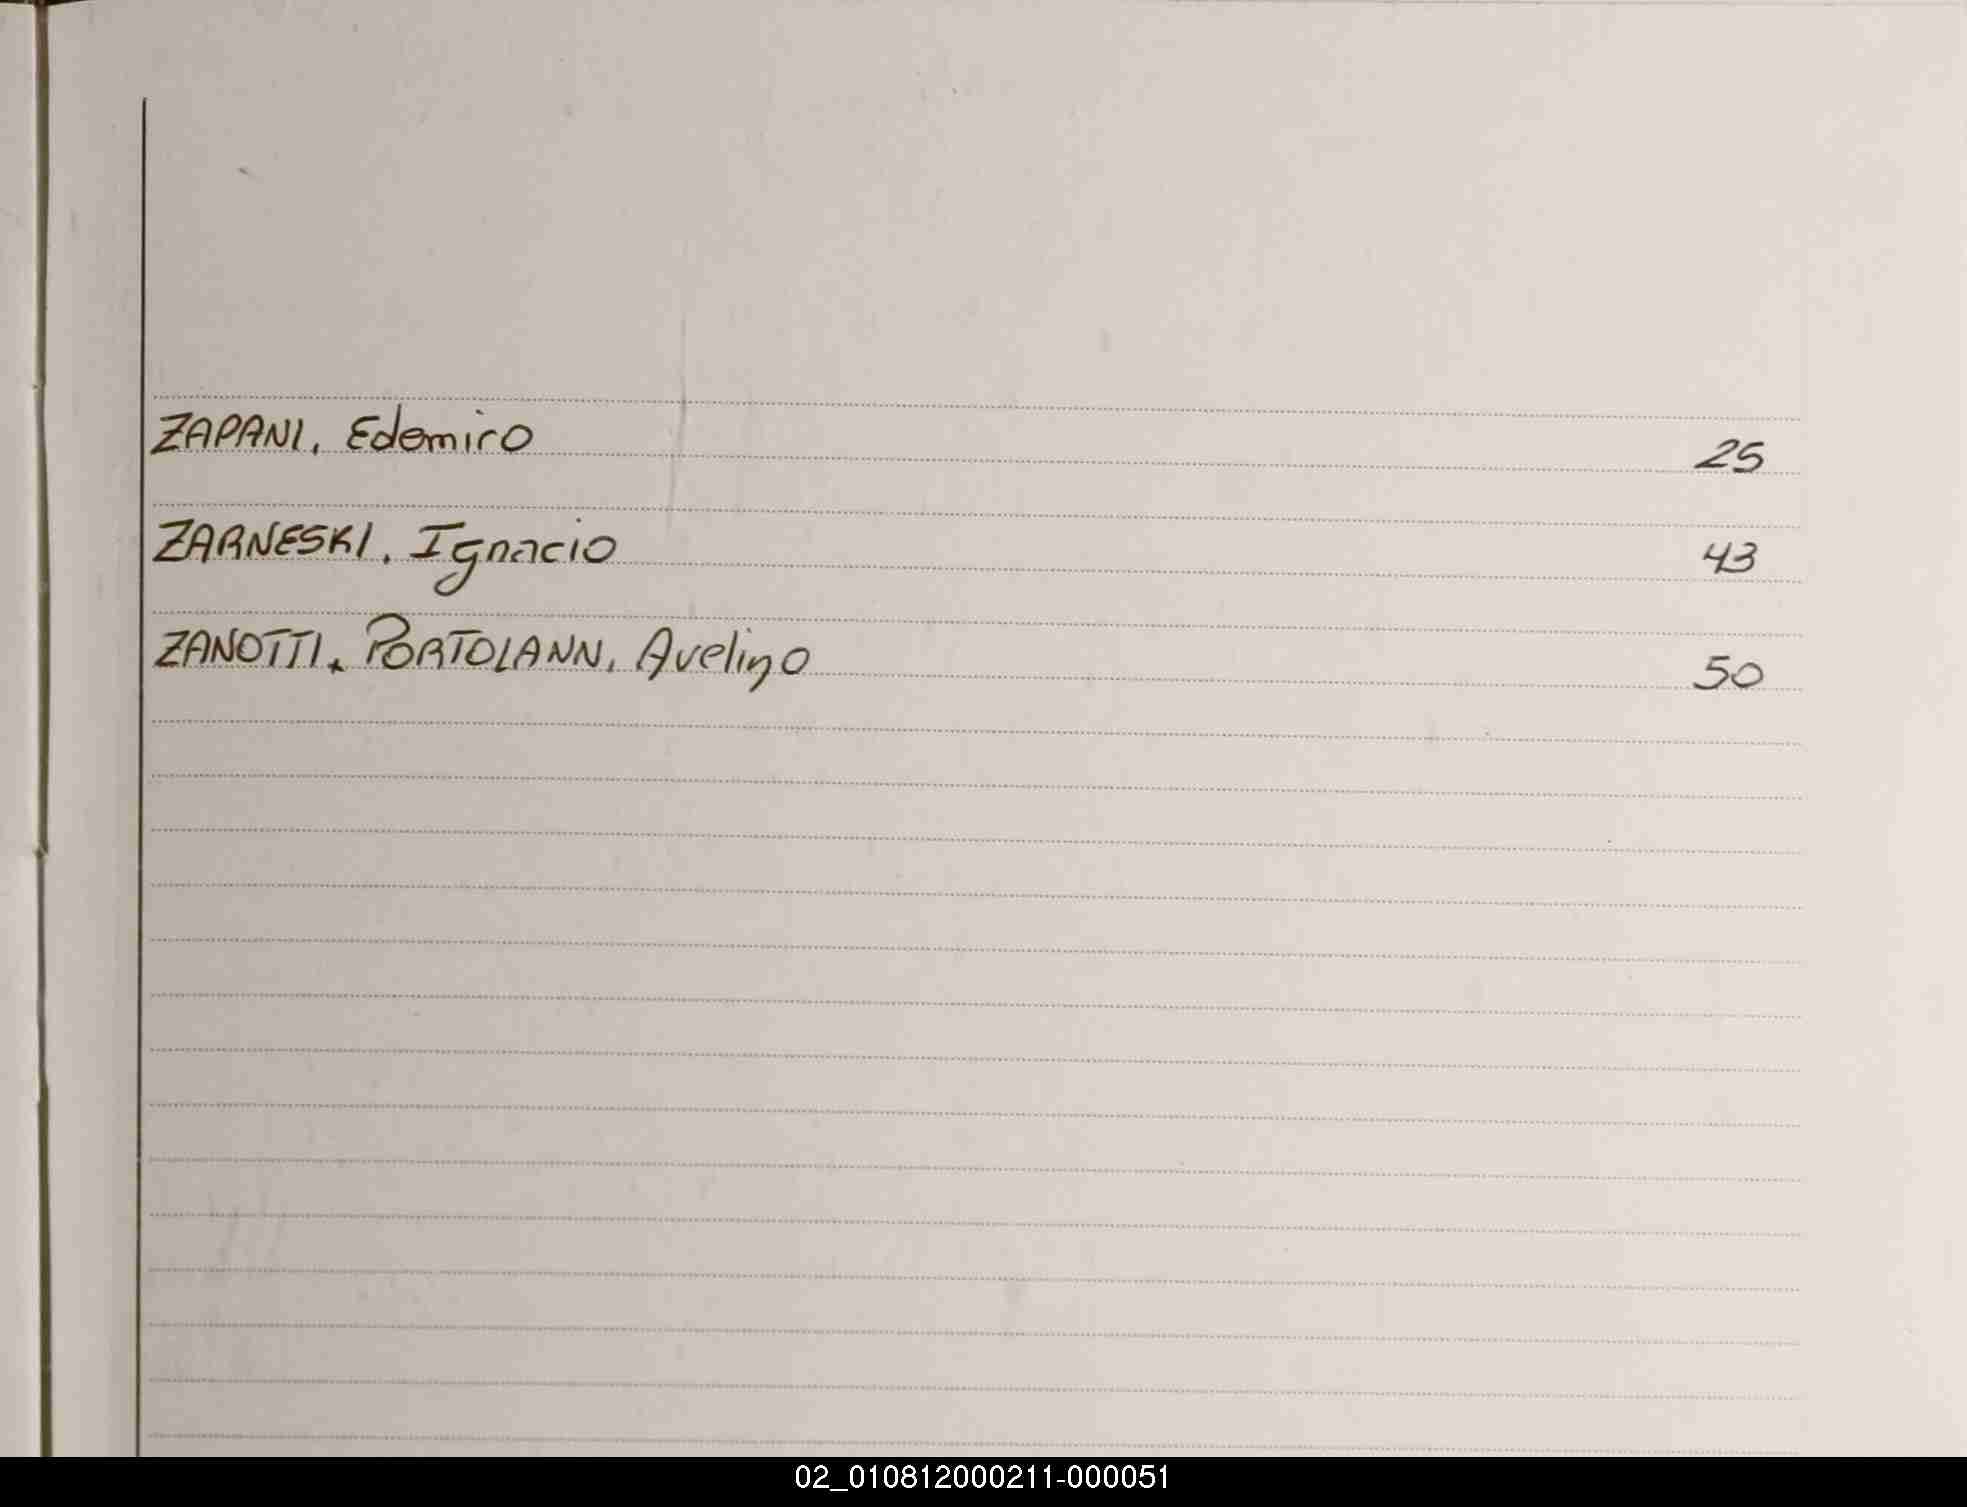 ZAPANI, Edemiro 25
ZARNESKI, Ignacio 43
ZANOTTI, PORTOLANN, Avelino 50
02_010812000211-000051